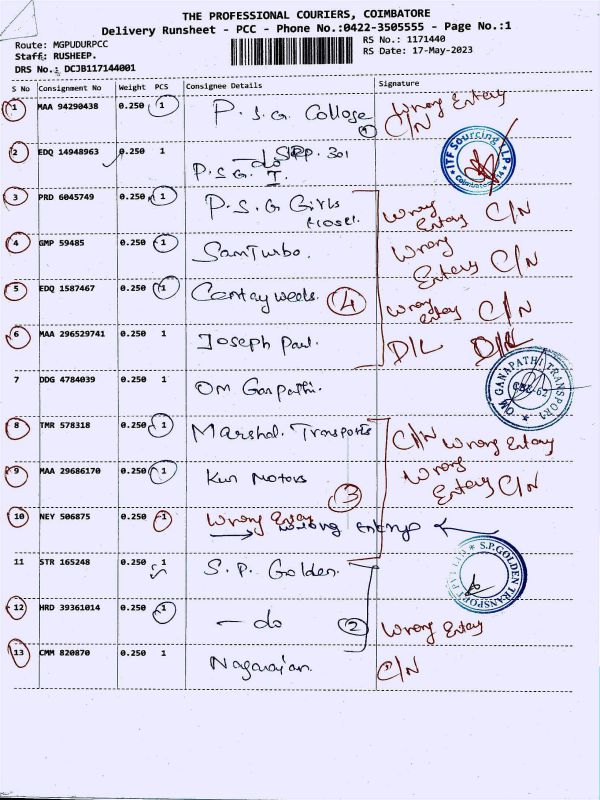 THE PROFESSIONAL COURIERS, COIMBATORE
Delivery Runsheet - PCC - Phone No.:0422-3505555 - Page No.:1
Route: MGPUDURPCC
RS No.: 1171440
Staff: RUSHEEP.
RS Date: 17-May-2023
DRS No.: DCJB117144001
S No Consignment No Weight PCS Consignee Details Signature
1 MAA 94290438 0.250 1 P.S.G. College Wrong Entery C/N
2 EDQ 14948963 0.250 1 P.S.G. I. do 301 ITF Sourcing LLP Coimbatore-14
3 PRD 6045749 0.250 1 P.S.G Girls Hostel. Wrong Entery C/N
4 GMP 59485 0.250 1 SamTurbo. Wrong Entery C/N
5 EDQ 1587467 0.250 1 4 Wrong Entery C/N
6 MAA 296529741 0.250 1 Joseph Paul. D/L D/L
7 DDG 4784039 0.250 1 OM Ganpathi. OM GANAPATHI TRANSPORT CBE-62
8 TMR 578318 0.250 1 Marshal. Transports C/N Wrong Entery
9 MAA 29686170 0.250 1 Kun Motors 3 Wrong Entery C/N
10 NEY 506875 0.250 1 Wrong Entry wrong entry
11 STR 165248 0.250 1 S.P. Golden. S.P.GOLDEN TRANSPORT PVT LTD
12 HRD 39361014 0.250 1 - do 2 Wrong Entery
13 CMM 820870 0.250 1 Nagarajan. C/N